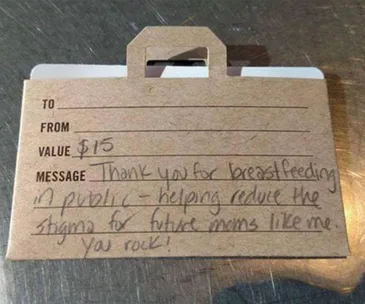 TO
FROM
VALUE $15
MESSAGE Thank you for breastfeeding
in public - helping reduce the
stigma for future moms like me.
You rock!